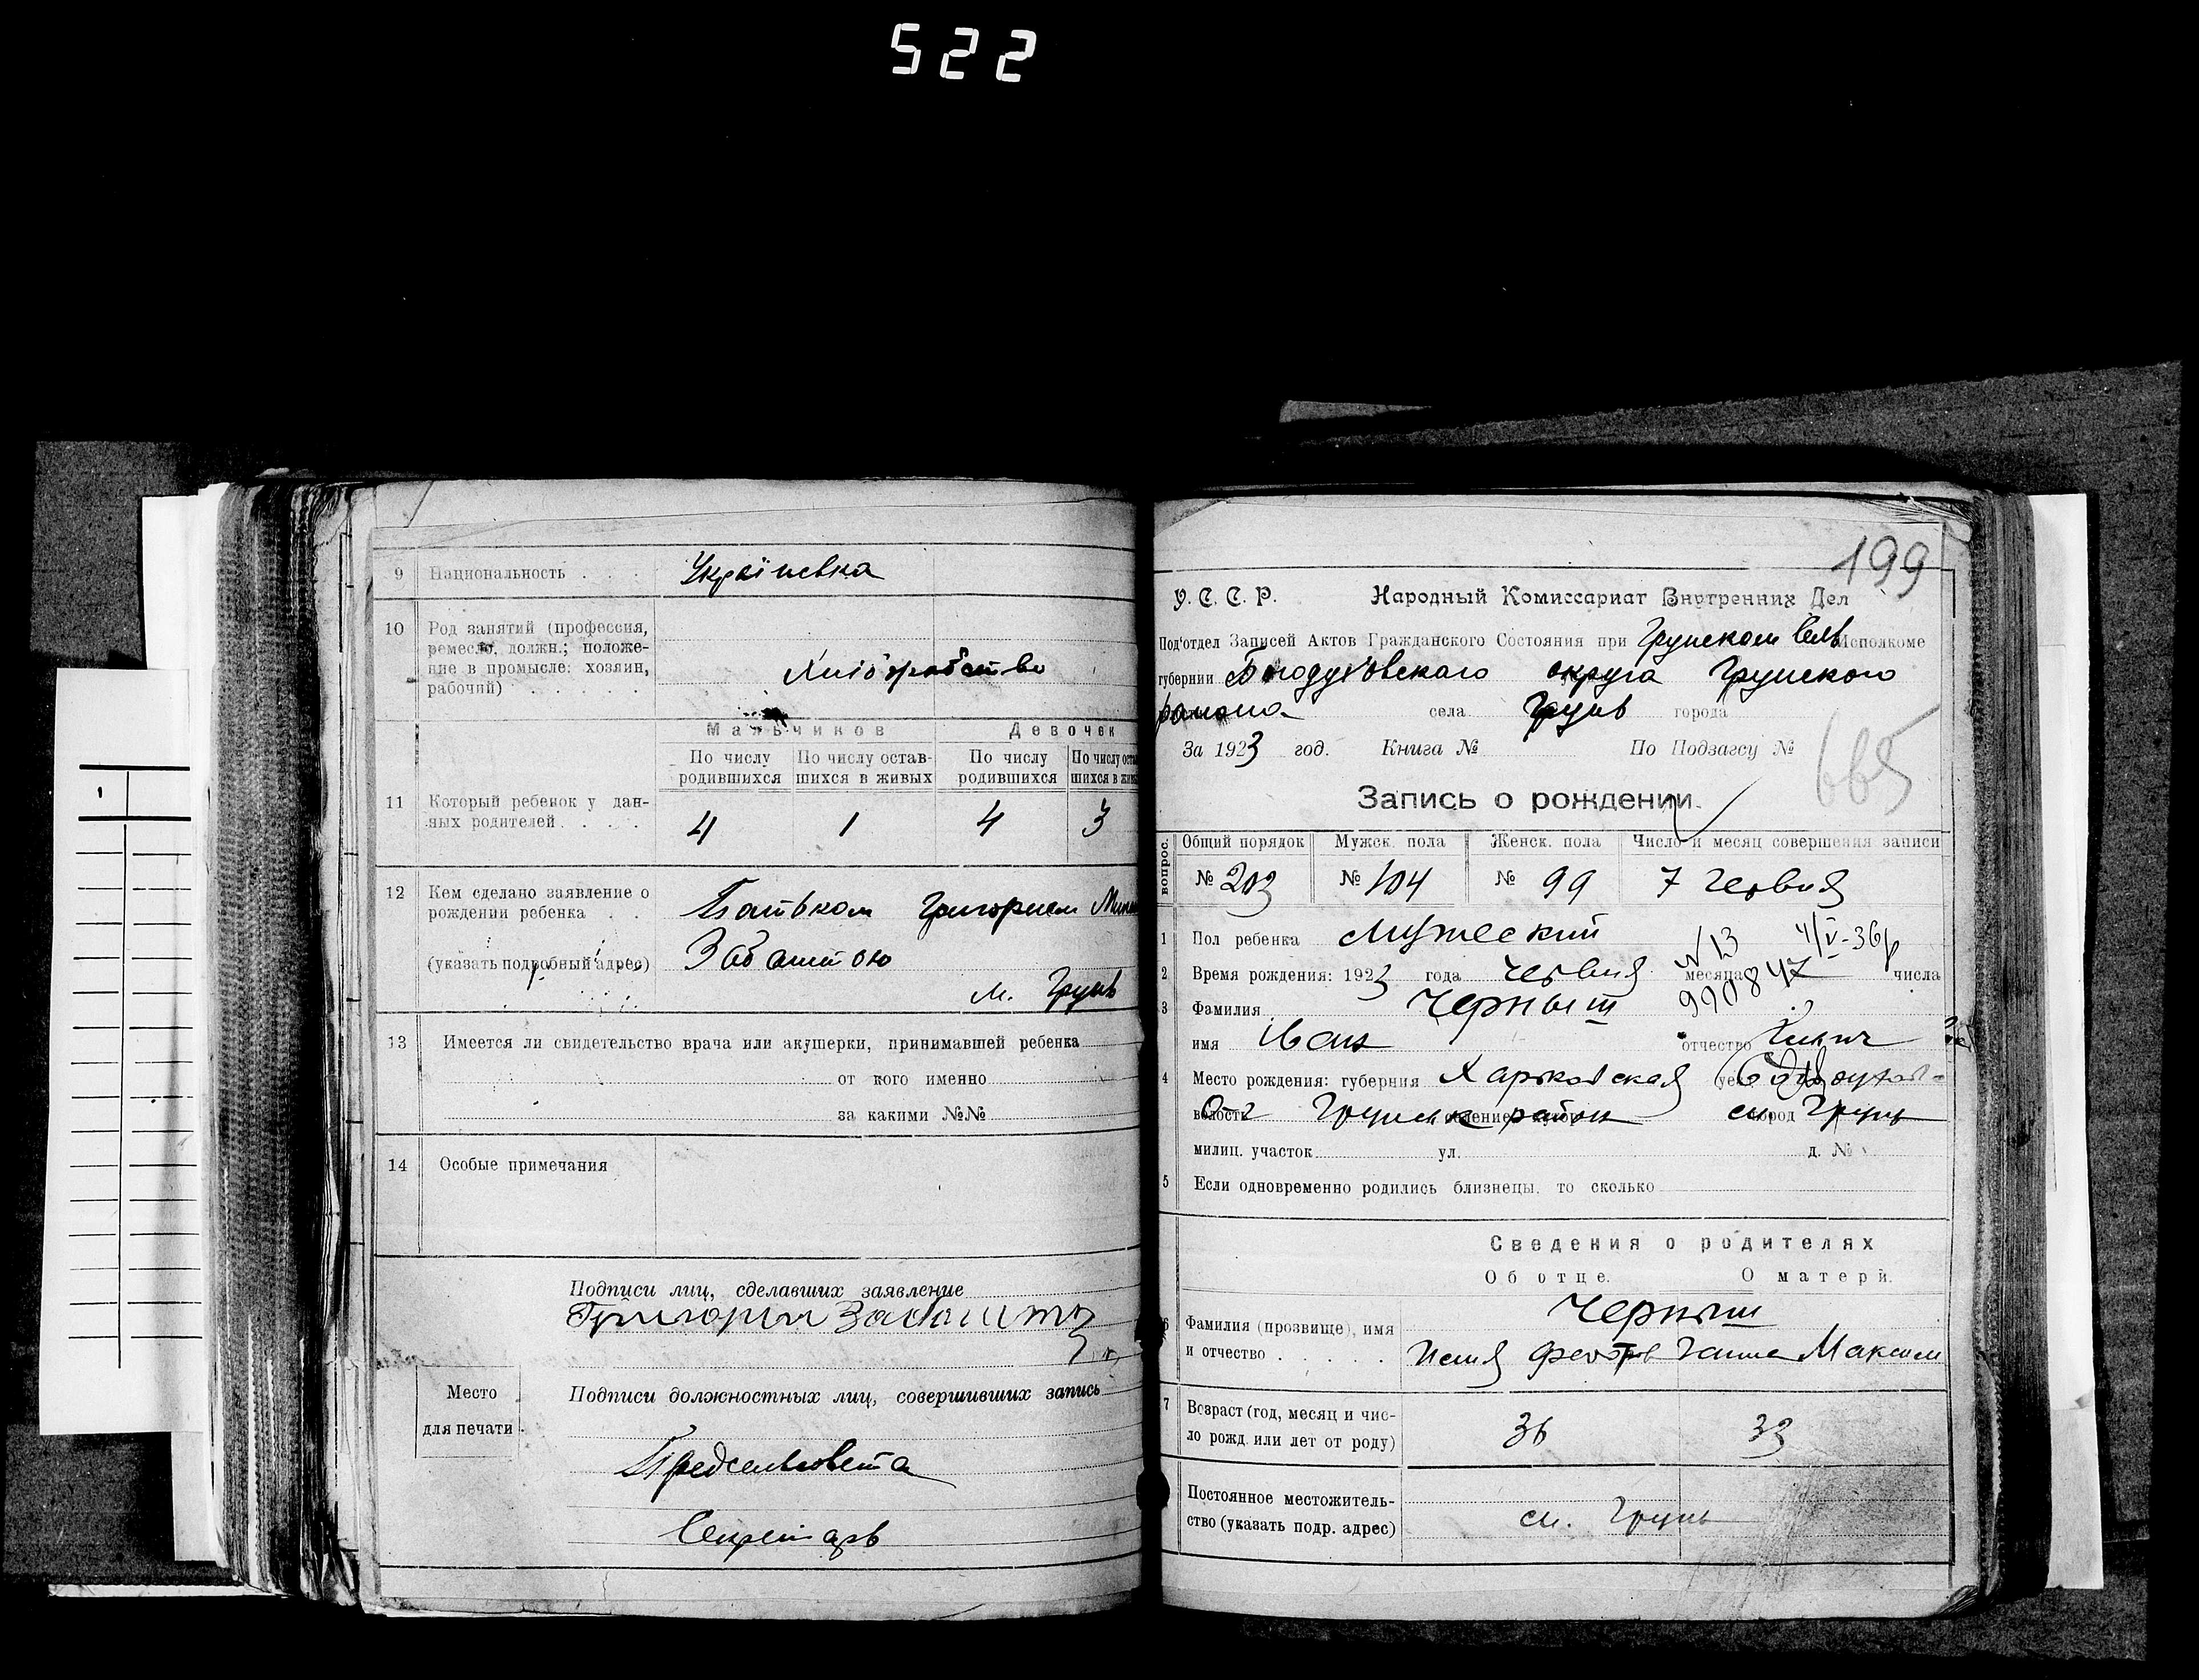 522
9 Национальность . . . Українська
10 Род занятий (профессия,
ремесло, должн.; положе-
ние в промысле: хозяин,
рабочий) . . . . . .
Хліборобство
Мальчиков Девочек
По числу родившихся По числу остав-шихся в живых По числу родившихся По числу оста шихся в жив
11 Который ребенок у дан-
ных родителей . . . .
4 1 4 3
12 Кем сделано заявление о
рождении ребенка . .
Батьком Григорием
(указать подробный адрес) Забаштою
м. Грунь
13 Имеется ли свидетельство врача или акушерки, принимавшей ребенка
от кого именно
за какими №№
14 Особые примечания
Подписи лиц, сделавших заявление
Григорій Забашта
Место
для печати
Подписи должностных лиц, совершивших запись
Предсельсовета
Секретарь
199
У. С. С. Р. Народный Комиссариат Внутренних Дел
Под'отдел Записей Актов Гражданского Состояния при Грунском Сель Исполкоме
губернии Богодуховского округа Грунского
района села Грунь города
За 1923 год. Книга № По Подзагсу № 665
Запись о рождении.
вопрос. Общий порядок Мужск. пола Женск. пола Число и месяц совершения записи
№ 203 № 104 № 99 7 червня
1 Пол ребенка Мужеский
№ 13 4/V-36р
2 Время рождения: 1923 года червня месяца числа
990847
3 Фамилия Черныш
имя Иван отчество
4 Место рождения: губерния Харьковская уезд
волость Грунск район город Грунь
милиц. участок ул. д. №
5 Если одновременно родились близнецы, то сколько
Сведения о родителях
Об отце. О матери.
Черныш
6 Фамилия (прозвище), имя
и отчество . . . . . Ганна Максим
7 Возраст (год, месяц и чис-
ло рожд. или лет от роду)
36 33
Постоянное местожитель-
ство (указать подр. адрес)
м. Грунь